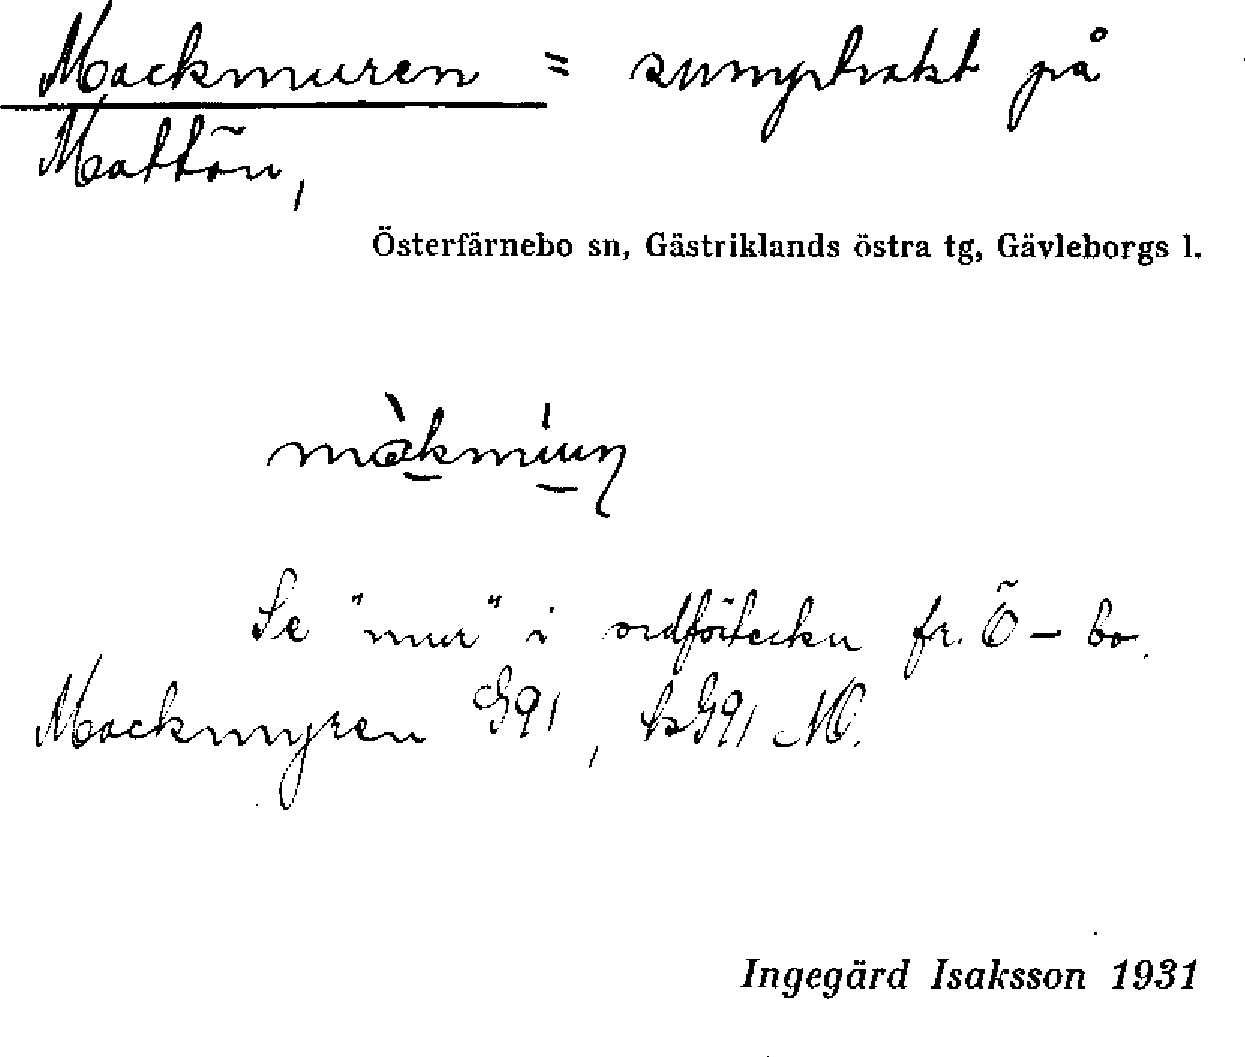 Mackmuren = sumptrakt på
Mattön,
Österfärnebo sn, Gästriklands östra tg, Gävleborgs l.
Se "mur" i ordförteckn fr. Ö-bo.
Mackmyren G91, ks G91 NO.
Ingegärd Isaksson 1931